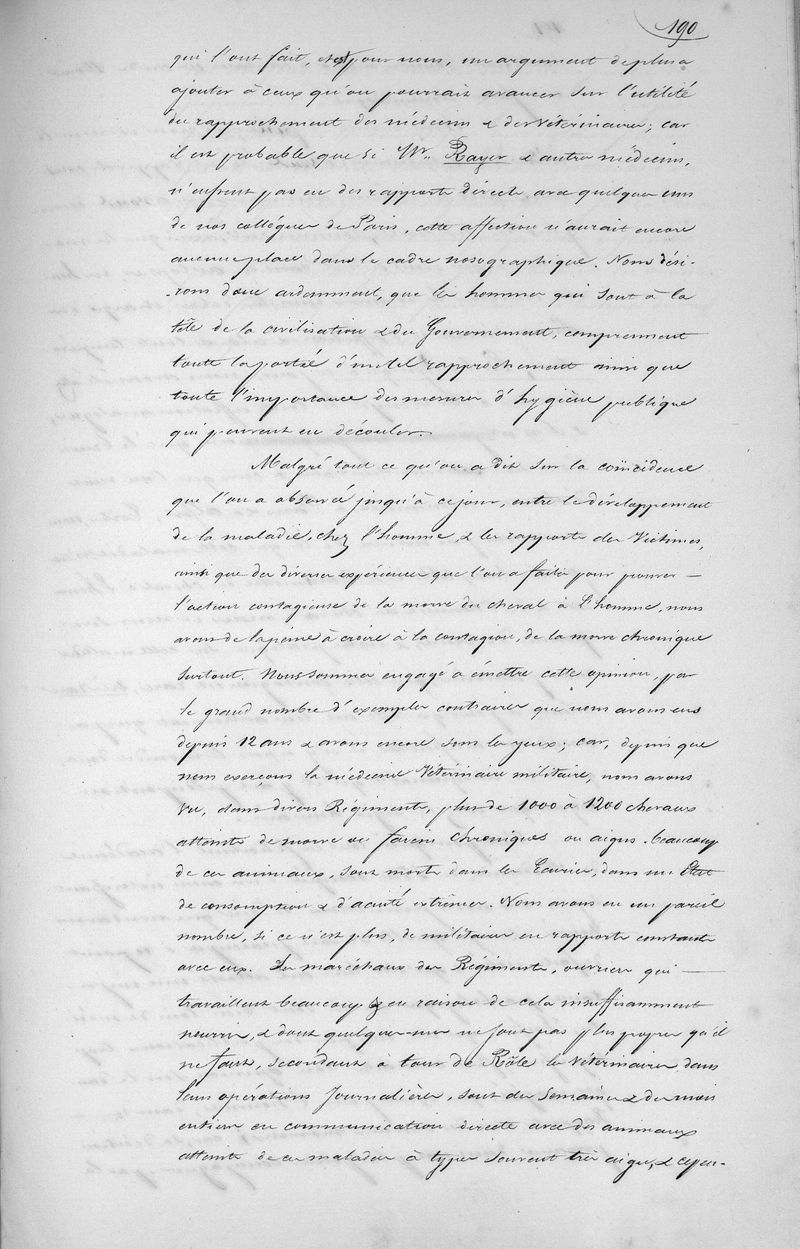 190
qui l'ont fait, c'est pour nous, un argument de plus a
ajouter à ceux qu'on pourrait avancer sur l'utilité
du rapprochement des médecins & des vétérinaires; car
il est probable que si Mr. Rayer & autres médecins,
n'eussent pas eu des rapports directs avec quelques uns
de nos collégues de Paris, cette affection n'aurait encore
aucune place dans le cadre nosographique. Nous dési-
-rons donc ardemment, que les hommes qui sont à la
tête de la civilisation & du Gouvernement, comprennent
toute la portée d'un tel rapprochement ainsi que
toute l'importance des mesures d'hygiène publique
qui peuvent en découler.
Malgré tout ce qu'on a dit sur la coïncidence
que l'on a observé jusqu'à ce jour, entre le développement
de la maladie, chez l'homme, & les rapports des Victimes,
ainsi que des diverses expériences que l'on a faites pour prouver —
l'action contagieuse de la morve du cheval à l'homme, nous
avons de la peine à croire à la contagion, de la morve chronique
surtout. Nous sommes engagé à émettre cette opinion, par
le grand nombre d'exemples contraires que nous avons eus
depuis 12 ans & avons encore sous les yeux; car, depuis que
nous exerçons la médecine Vétérinaire militaire, nous avons
vu, dans divers Régiments, plus de 1000 à 1200 chevaux
atteints de morve ou farcin chroniques ou aigus. beaucoup
de ces animaux, sont morts dans les Ecuries, dans un Etat
de consomption & d'acuité extrêmes. Nous avons eu un pareil
nombre, si ce n'est plus, de militaires en rapports constants
avec eux. Les maréchaux des Régiments, ouvriers qui —
travaillent beaucoup & en raison de cela insuffisamment
nourris, & dont quelques-uns ne sont pas plus propres qu'il
ne faut, secondant à tour de Rôle les vétérinaires dans
leurs opérations Journalières, sont des semaines & des mois
entiers en communication directe avec des animaux
atteints de ces maladies à types souvent très aigus, & cepen-